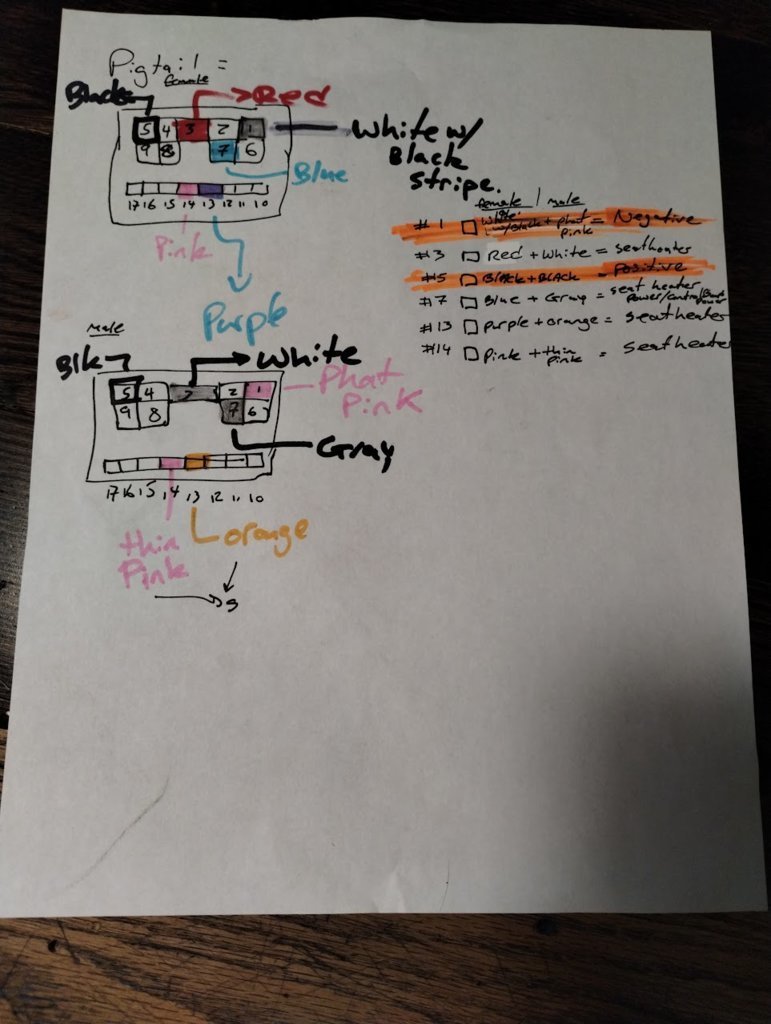 Pigtail =
female
Black
Red
5 4 3 2 1
White w/
Black
stripe.
9 8 7 6
Blue
17 16 15 14 13 12 11 10
Pink
Purple
female | male
#1 White w/Black + phat pink = Negative
#3 Red + White = seatheater
#5 Black + BLACK = Positive
#7 Blue + Gray = seat heater
#13 purple + orange = seatheater
#14 Pink + thin pink = seatheater
male
Blk
White
5 4 3 2 1
Phat
Pink
9 8 7 6
Gray
17 16 15 14 13 12 11 10
thin
Pink
orange